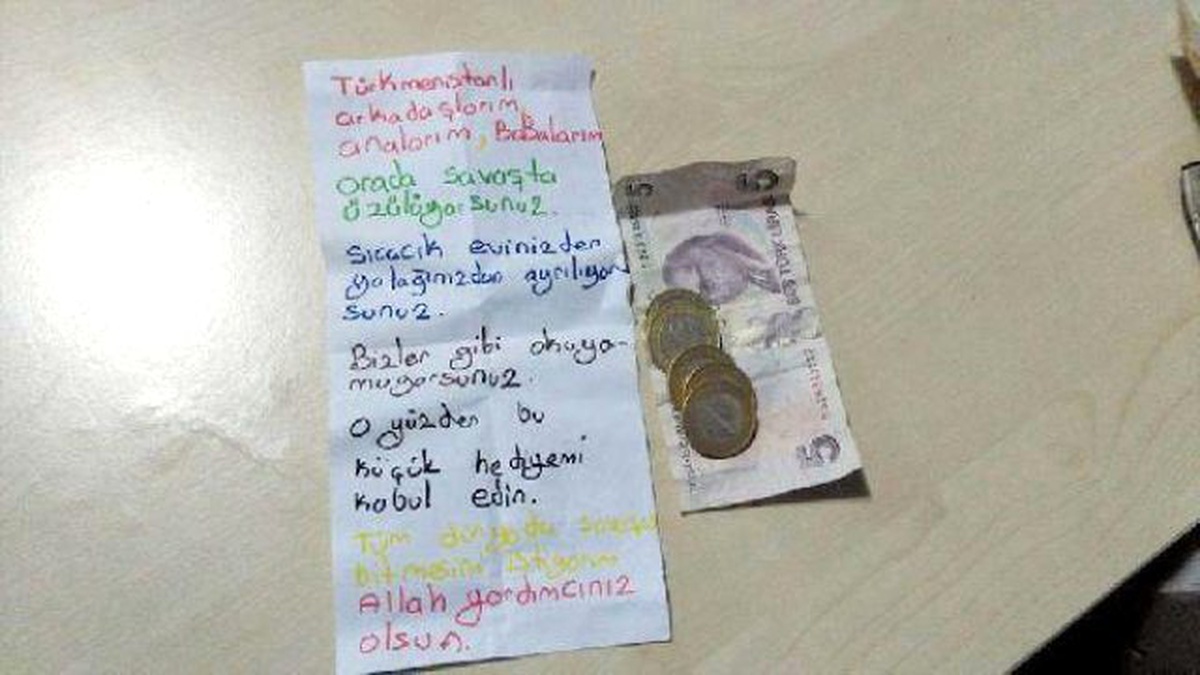 Türkmenistanlı
arkadaşlarım,
analarım, Babalarım
orada savaşta
üzülüyorsunuz.
sıcacık evinizden
yatağınızdan ayrılıyor
sunuz.
Bizler gibi okuya-
mıyorsunuz.
O yüzden bu
küçük hediyemi
kabul edin.
Tüm dünyada
bitmesini istiyorum
Allah yardımcınız
olsun.
5
5
5